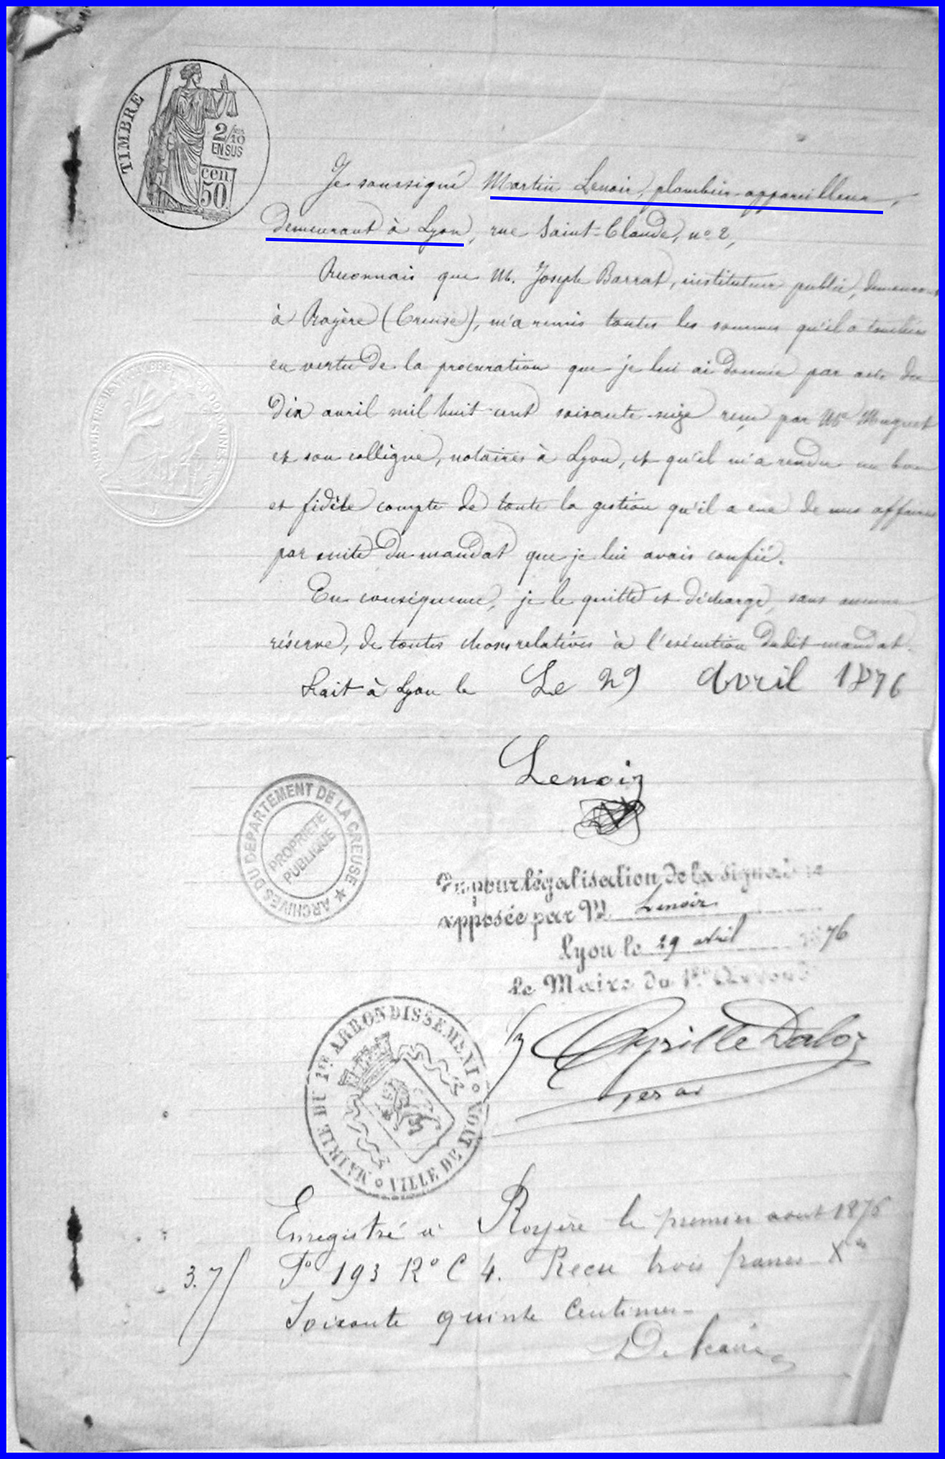 TIMBRE
2/10
EN SUS
cen
50
Je soussigné Martin Lenoir, plombier-appareilleur,
demeurant à Lyon, rue Saint-Claude, no 2,
Reconnais que M. Joseph Barrat, instituteur public, demeurant
à Royère (Creuse), m'a remis toutes les sommes qu'il a touchées
en vertu de la procuration que je lui ai donnée par acte du
dix avril mil huit cent soixante-seize reçu par Me Muguet
et son collègue, notaires à Lyon, et qu'il m'a rendu un bon
et fidèle compte de toute la gestion qu'il a eue de mes affaires
par suite du mandat que je lui avais confié.
En conséquence, je le quitte et décharge, sans aucune
réserve, de toutes choses relatives à l'exécution dudit mandat.
Fait à Lyon le Le 29 Avril 1876
Lenoir
ARCHIVES DU DEPARTEMENT DE LA CREUSE
PROPRIÉTÉ
PUBLIQUE
Vu pour légalisation de la signature
apposée par M Lenoir
Lyon le 29 avril 1876
Le Maire du 1er Arrond
Cyrille Daloz
MAIRIE DU 1er ARRONDISSEMENT
VILLE DE LYON
Enregistré à Royère le premier aout 1876
Fo 193 Ro C 4. Recu trois francs Xes
3.75
Soixante quinze centimes